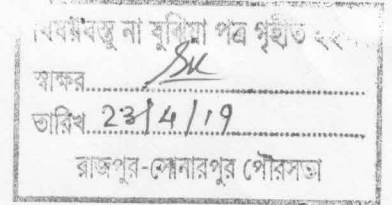 বিষয়বস্তু না বুঝিয়া পত্র গৃহীত
স্বাক্ষর
তারিখ 23/4/19
রাজপুর-সোনারপুর পৌরসভা